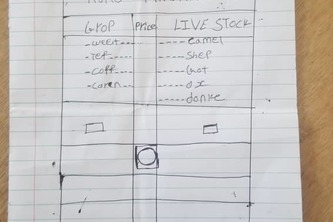 CROP PRICE LIVE STOCK
-weet- -------camel
-Tef- ------shep
-coff- ------Got
-coren- -----ox
------donke